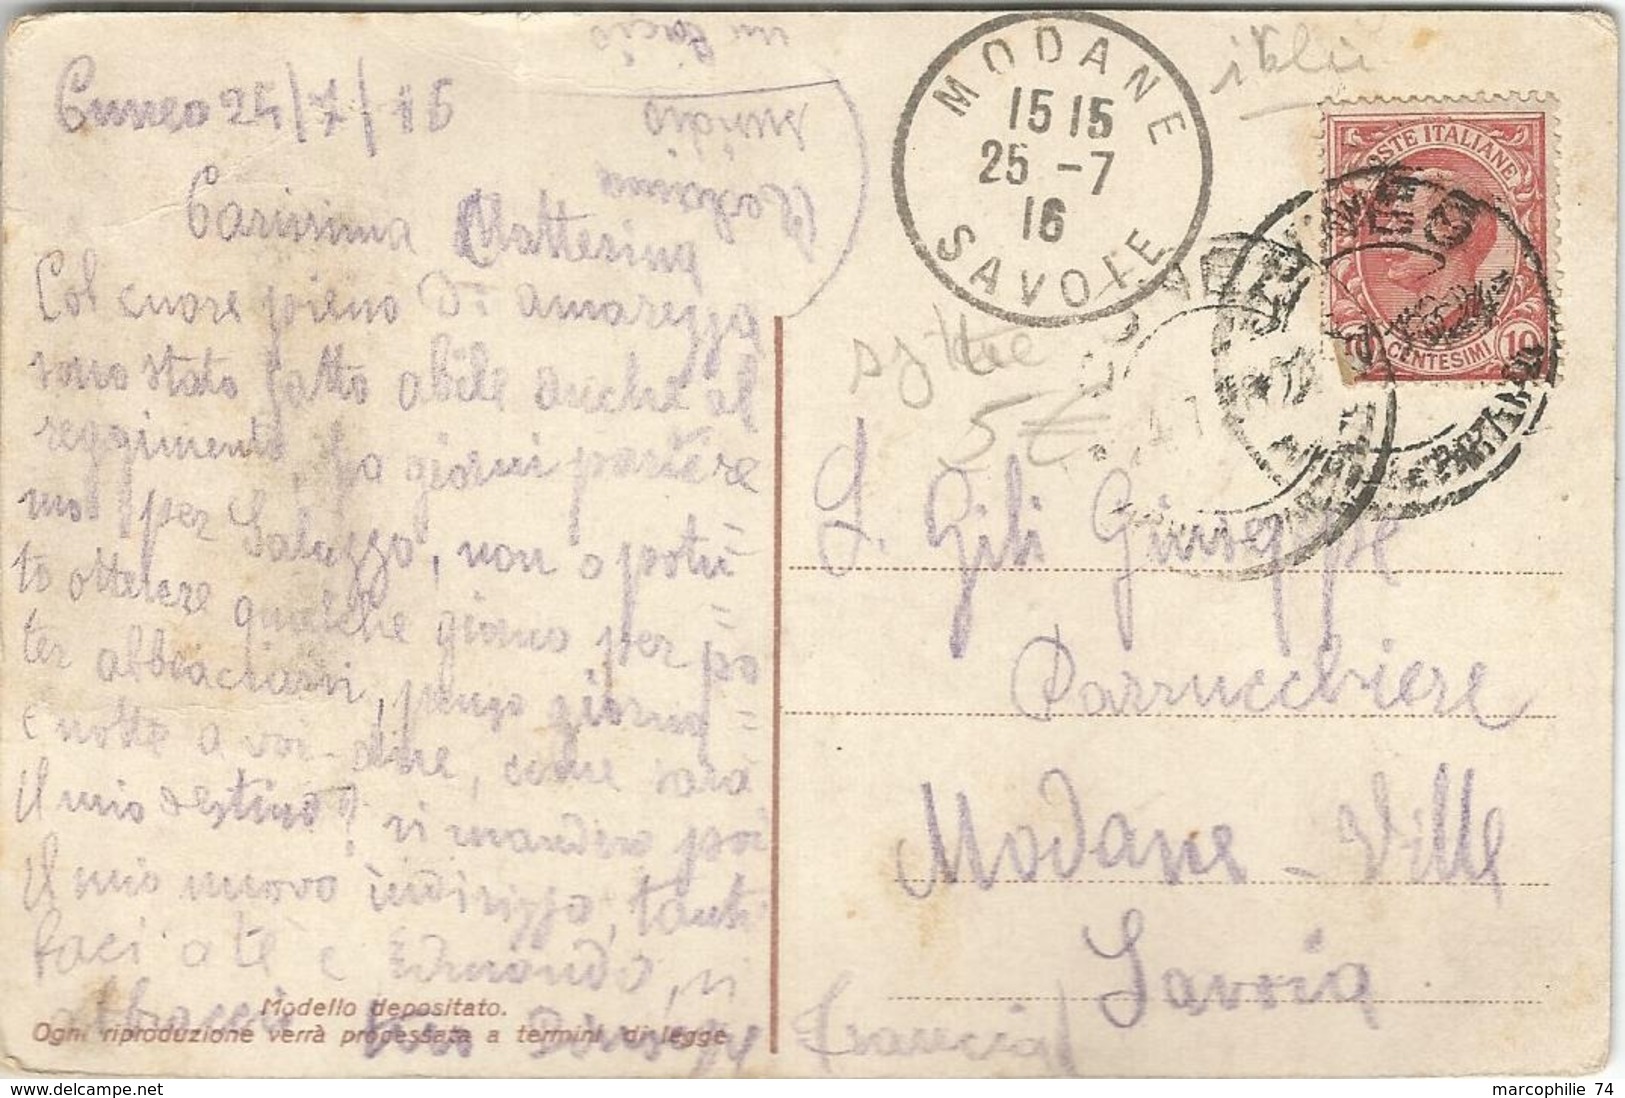 Cuneo 24/7/16
Carissima Matterina
Col cuore pieno di amarezza
sono stato fatto abile anche al
reggimento, fra giorni partire
mo per Saluzzo, non o potu=
to ottenere qualche giorno per po=
ter abbracciarvi, penso giorno
e notte a voi - dire, come sarà
il mio destino? vi manderò poi
il mio nuovo indirizzo, tanti
baci a te e Edmondo, vi
abbraccia tuo Giuseppe
Modello depositato.
Ogni riproduzione verrà processata a termini di legge
un bacio
MODANE
15 15
25 -7
16
SAVOIE
POSTE ITALIANE
10 CENTESIMI 10
CUNEO
5€
S. Gili Giuseppe
Parrucchiere
Modane - Ville
Savoia
(Francia)
marcophilie 74